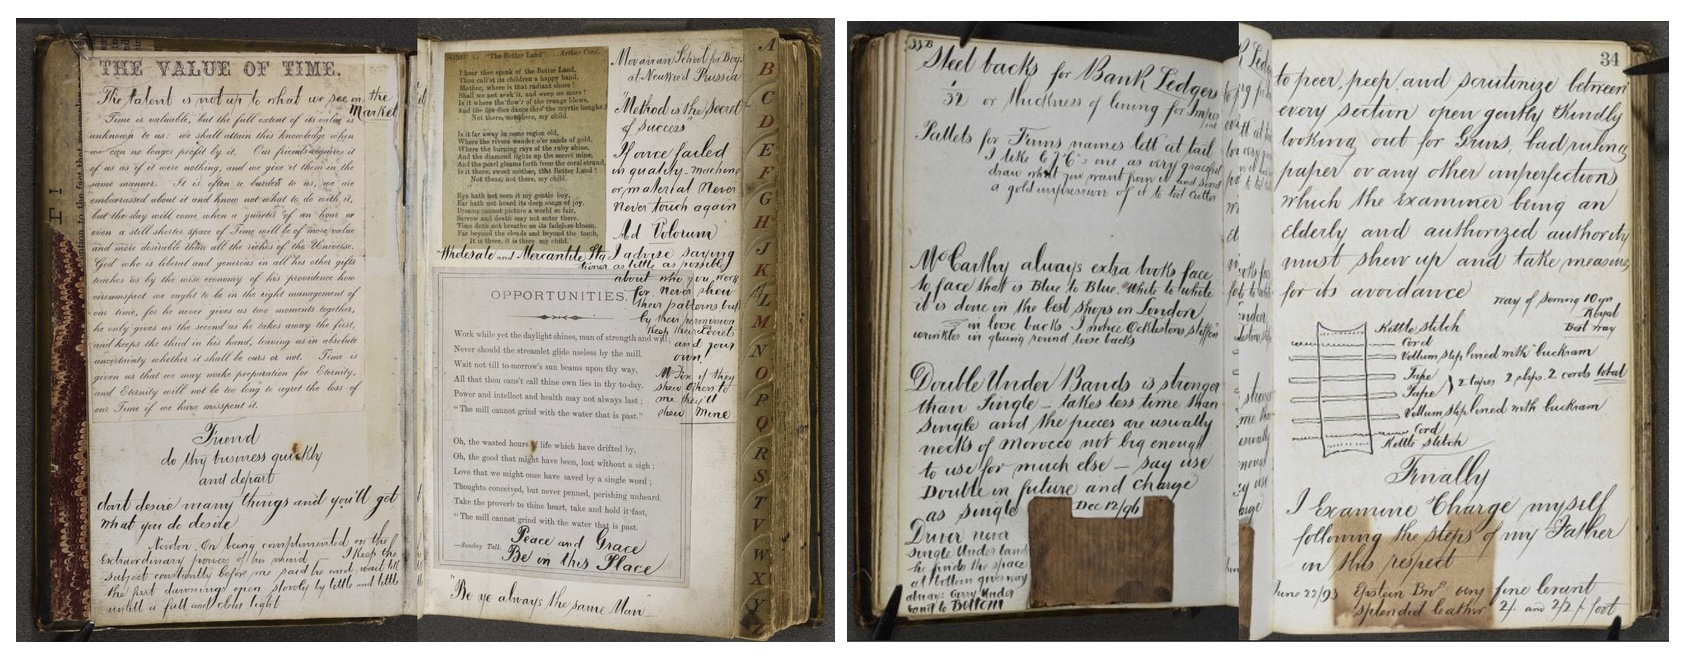 THE VALUE OF TIME.
The talent is not up to what we see in the
Market
Time is valuable, but the full extent of its value is
unknown to us: we shall attain this knowledge when
we can no longer profit by it. Our friends require it
of us as if it were nothing, and we give it them in the
same manner. It is often a burden to us, we are
embarrassed about it and know not what to do with it,
but the day will come when a quarter of an hour or
even a still shorter space of Time will be of more value
and more desirable than all the riches of the Universe.
God who is liberal and generous in all his other gifts
teaches us by the wise economy of his providence how
circumspect we ought to be in the right management of
our time, for he never gives us two moments together,
he only gives us the second as he takes away the first,
and keeps the third in his hand, leaving us in absolute
uncertainty whether it shall be ours or not. Time is
given us that we may make preparation for Eternity,
and Eternity will not be too long to regret the loss of
our Time if we have misspent it.
Friend
do thy business quickly
and depart
dont desire many things and you'll get
what you do desire
Newton. On being complimented on the
Extraordinary powers of his mind I keep the
subject constantly before me said he and wait till
the first dawnings open slowly by little and little
untill a full and clear light
SONG "The Better Land" Arthur Cecil.
I hear thee speak of the Better Land,
Thou call'st its children a happy band,
Mother, where is that radiant shore?
Shall we not seek it, and weep no more?
Is it where the flow'r of the orange blows,
And the fire-flies dance thro' the myrtle boughs?
Not there, not there, my child.
Is it far away in some region old,
Where the rivers wander o'er sands of gold,
Where the burning rays of the ruby shine,
And the diamond lights up the secret mine,
And the pearl gleams forth from the coral strand,
Is it there, sweet mother, that Better Land?
Not there, not there, my child.
Eye hath not seen it my gentle boy,
Ear hath not heard its deep songs of joy,
Dreams cannot picture a world so fair,
Sorrow and death may not enter there,
Time doth not breathe on its fadeless bloom,
Far beyond the clouds and beyond the tomb,
It is there, it is there my child.
Moravian School for Boys
at Neukreid Russia
"Method is the Secret
of Success"
If once failed
in quality, machine
or material Never
Never touch again
Ad Volorum
Wholesale and Mercantile Sta
I advise saying
as little as possibly
about who you work
for Never shew
their patterns but
by their permission
keep their secret
and your
own.
for if they
shew others to
me they'll
shew Mine
OPPORTUNITIES.
Work while yet the daylight shines, man of strength and will;
Never should the streamlet glide useless by the mill.
Wait not till to-morrow's sun beams upon thy way,
All that thou cans't call thine own lies in thy to-day.
Power and intellect and health may not always last;
"The mill cannot grind with the water that is past."
Oh, the wasted hours of life which have drifted by,
Oh, the good that might have been, lost without a sigh;
Love that we might once have saved by a single word;
Thoughts conceived, but never penned, perishing unheard.
Take the proverb to thine heart, take and hold it fast,
"The mill cannot grind with the water that is past.
—Sunday Talk.
Peace and Grace
Be in this Place
"Be ye always the same Man
A
B
C
D
E
F
G
H
J
K
L
M
N
O
P
Q
R
S
T
V
W
X
Y
Z
33B
Steel backs for Bank Ledgers
/32 or thickness of lining for Imper
Pallets for Firms names lett at tail
I like one as very graceful
draw what you want from it and send
a gold impression of it to tool Cutter
McCarthy always extra books face
to face that is Blue to Blue. White to white
it is done in the best shops in London
in loose backs I notice stiffen
wrinkles in gluing round loose backs
Double Under Bands is stronger
than Single — takes less time than
single and the pieces are usually
necks of morocco not big enough
to use for much else — say use
Double in future and Charge
as single
Dec 12/96
Driver never
single Under bands
he finds the space
at bottom gives way
always carry Under
band to Bottom
34
to peer, peep and scrutinize between
every section open gently & kindly
looking out for Grins, bad ruling
paper or any other imperfections
which the Examiner being an
elderly and authorized authority
must shew up and take measures
for its avoidance
way of sewing 10 qr
Royal
Best way
Kettle stitch
Cord
Vellum slip lined with buckram
Tape
Tape } 2 tapes 2 slips 2 cords total
Vellum slip lined with buckram
Cord
Kettle stitch
Finally
I Examine & Charge myself
following the steps of my Father
in this respect
June 22/93 Epstein Bros very fine levant
splendid leather 2/- and 2/2 foot